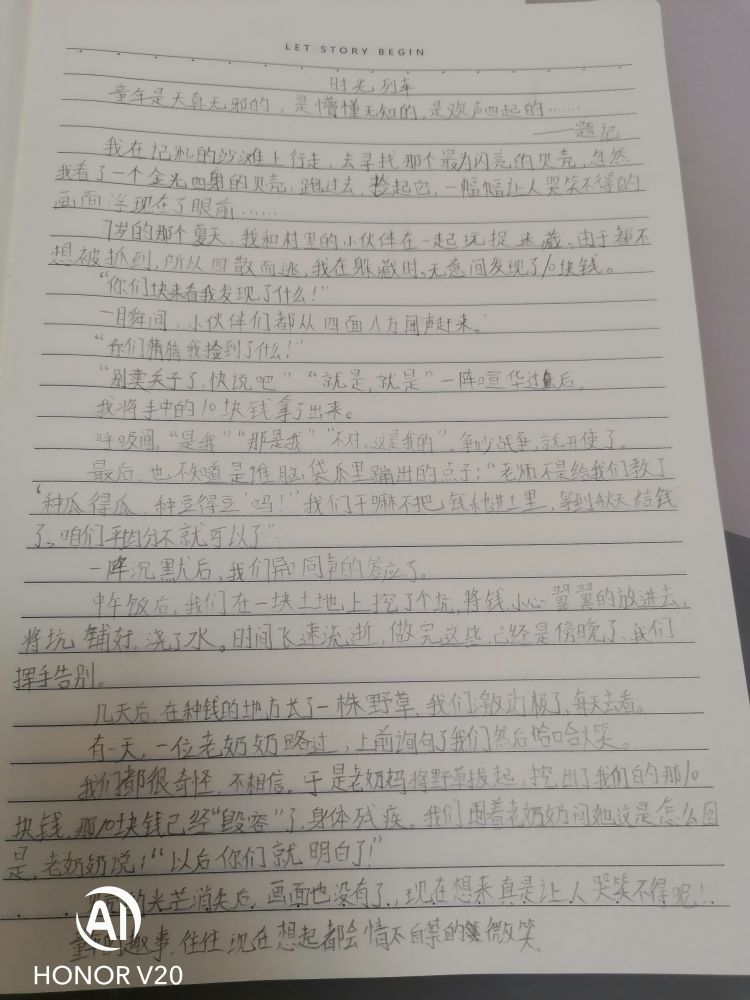 LET STORY BEGIN
时光列车
童年是天真无邪的，是懵懂无知的，是欢声四起的……
——题记
我在记忆的沙滩上行走，去寻找那个最为闪亮的贝壳，忽然
我看了一个金光四射的贝壳，跑过去，捡起它，一幅幅让人哭笑不得的
画面浮现在了眼前……
7岁的那个夏天，我和村里的小伙伴在一起玩捉迷藏，由于都不
想被抓到，所以四散而逃，我在躲藏时，无意间发现了10块钱。
“你们快来看我发现了什么！”
一瞬间，小伙伴们都从四面八方闻声赶来。
“你们猜猜我捡到了什么！”
“别卖关子了，快说吧”“就是，就是”一阵喧华过后，
我将手中的10块钱拿了出来。
呼吸间，“是我”“那是我”“不对，这是我的”，争吵战争，就开使了。
最后，也不知道是谁脑袋瓜里蹦出的点子：“老师不是给我们教了
‘种瓜得瓜，种豆得豆’吗！”我们干嘛不把钱种进土里，等到秋天结钱
了，咱们平均分不就可以了”
一阵沉默后，我们同声的答应了。
中午饭后，我们在一块土地上挖了个坑，将钱小心翼翼的放进去，
将坑铺好，浇了水。时间飞速流逝，做完这些，已经是傍晚了，我们
挥手告别。
几天后，在种钱的地方长了一株野草，我们激动极了，每天去看。
有一天，一位老奶奶路过，上前询句了我们然后哈哈大笑。
我们都很奇怪，不相信，于是老奶妈将野草拔起，挖出了我们的那10
块钱，那10块钱已经“毁容”了，身体残疾。我们围着老奶奶问她这是怎么回
是，老奶奶说：“以后你们就明白了！”
的光芒消失后，画面也没有了，现在想来真是让人哭笑不得呢！
童年的趣事，往往现在想起都会情不自禁的微笑
AI
HONOR V20